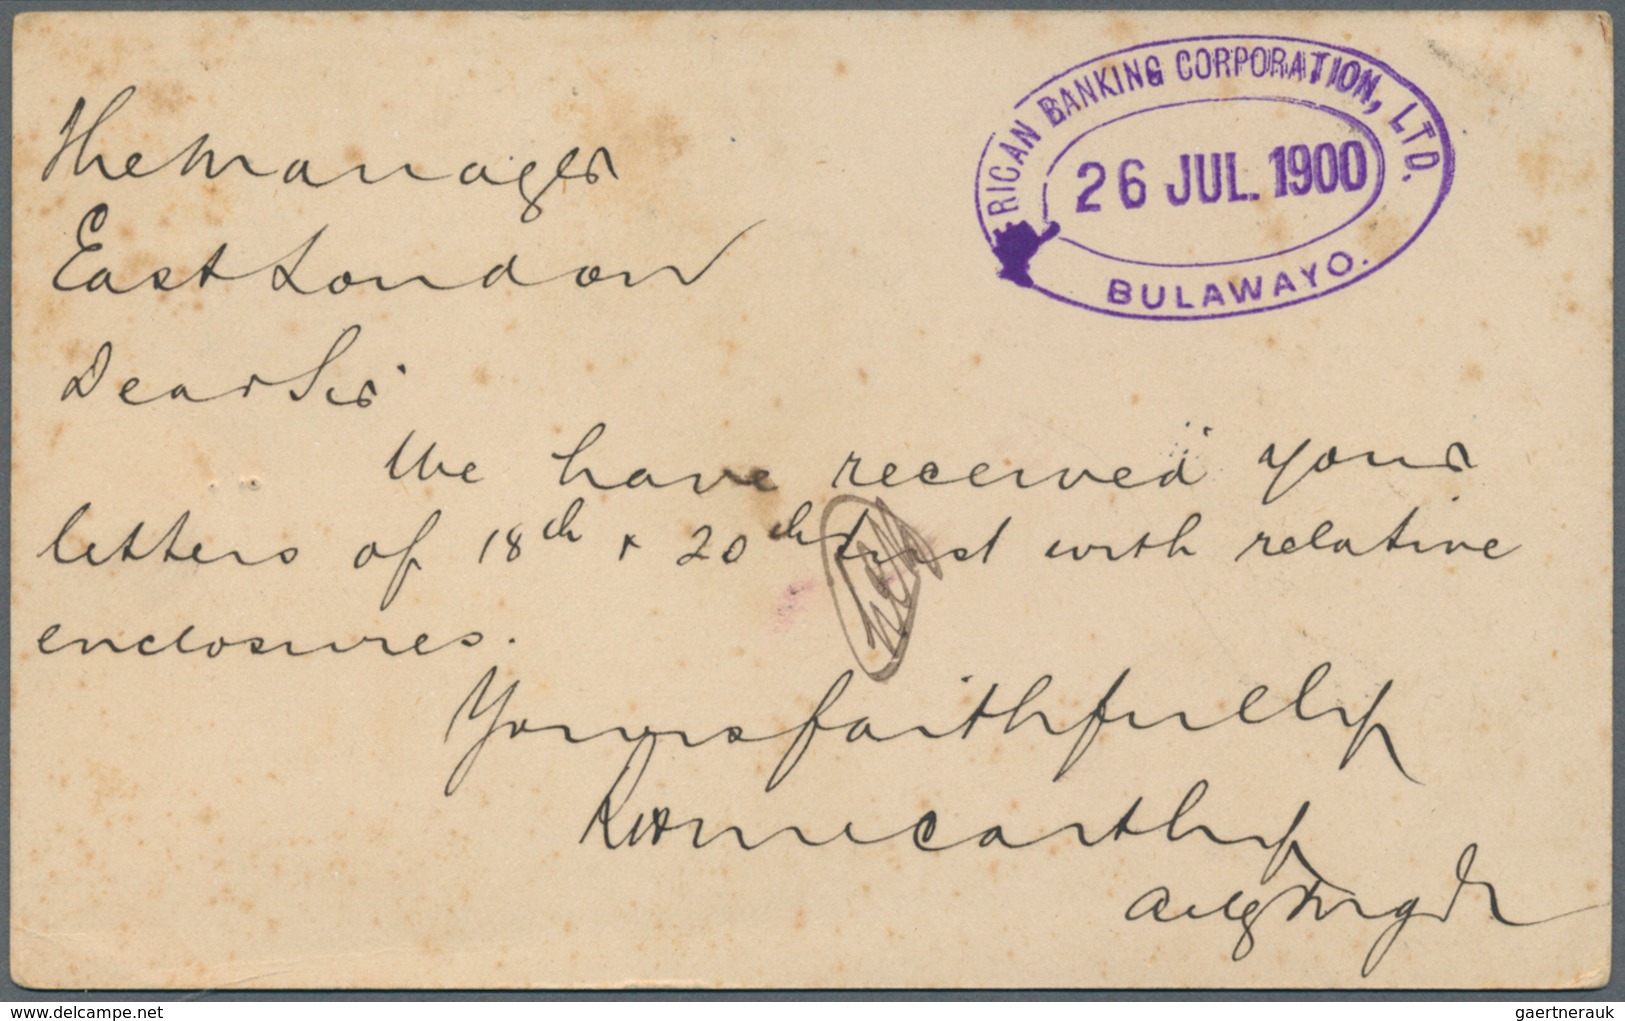 RICAN BANKING CORPORATION, LTD.
26 JUL. 1900
BULAWAYO.
The Manager
East London
Dear Sir
We have received your
letters of 18th & 20th inst with relative
enclosures.
Yours faithfully
McCarthy
delcampe.net
gaertnerauk